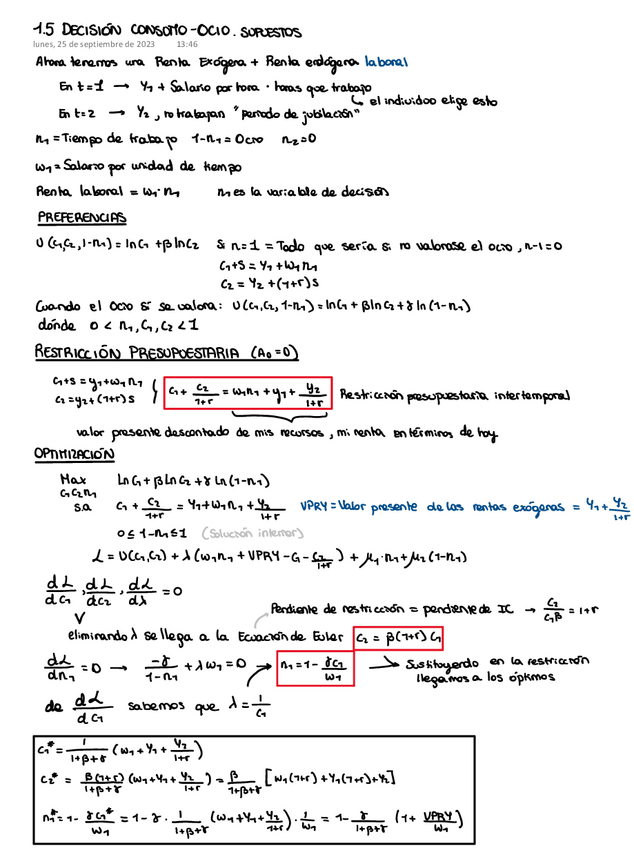 1.5 DECISIÓN CONSUMO-OCIO. SUPUESTOS
lunes, 25 de septiembre de 2023 13:46
Ahora tenemos una Renta Exógena + Renta endógena laboral
En t=1 → Y₁ + Salario por hora · horas que trabajo
↳ el individuo elige esto
En t=2 → Y₂, no trabajan "periodo de jubilación"
n₁ = Tiempo de trabajo 1-n₁ = Ocio n₂=0
w₁ = Salario por unidad de tiempo
Renta laboral = w₁·n₁ n₁ es la variable de decisión
PREFERENCIAS
U(c₁,c₂,1-n₁) = ln c₁ + β ln c₂ Si n=1 = Todo que sería si no valorase el ocio, n-1=0
c₁+s = y₁+w₁n₁
c₂ = y₂+(1+r)s
Cuando el Ocio sí se valora: U(c₁,c₂,1-n₁) = ln c₁ + β ln c₂ + γ ln(1-n₁)
dónde 0 < n₁, c₁, c₂ < 1
RESTRICCIÓN PRESUPUESTARIA (A₀=0)
c₁+s = y₁+w₁n₁
c₂ = y₂+(1+r)s } c₁ + c₂/(1+r) = w₁n₁ + y₁ + y₂/(1+r) Restricción presupuestaria intertemporal
valor presente descontado de mis recursos, mi renta en términos de hoy
OPTIMIZACIÓN
Max ln c₁ + β ln c₂ + γ ln(1-n₁)
c₁ c₂ n₁
s.a c₁ + c₂/(1+r) = y₁+w₁n₁+y₂/(1+r) VPRY = Valor presente de las rentas exógenas = y₁+y₂/(1+r)
0 ≤ 1-n₁ ≤ 1 (Solución interior)
L = U(c₁,c₂) + λ(w₁n₁ + VPRY - c₁ - c₂/(1+r)) + μ₁·n₁ + μ₂(1-n₁)
dL/dc₁, dL/dc₂, dL/dλ = 0
Pendiente de restricción = pendiente de IC → c₂/(c₁β) = 1+r
eliminando λ se llega a la Ecuación de Euler c₂ = β(1+r)c₁
dL/dn₁ = 0 → -γ/(1-n₁) + λw₁ = 0 → n₁ = 1 - γc₁/w₁ → Sustituyendo en la restricción
llegamos a los óptimos
de dL/dc₁ sabemos que λ = 1/c₁
c₁* = 1/(1+β+γ) (w₁+y₁+y₂/(1+r))
c₂* = β(1+r)/(1+β+γ) (w₁+y₁+y₂/(1+r)) = β/(1+β+γ) [w₁(1+r)+y₁(1+r)+y₂]
n₁* = 1 - γc₁*/w₁ = 1-γ · 1/(1+β+γ) (w₁+y₁+y₂/(1+r)) · 1/w₁ = 1 - γ/(1+β+γ) (1+ VPRY/w₁